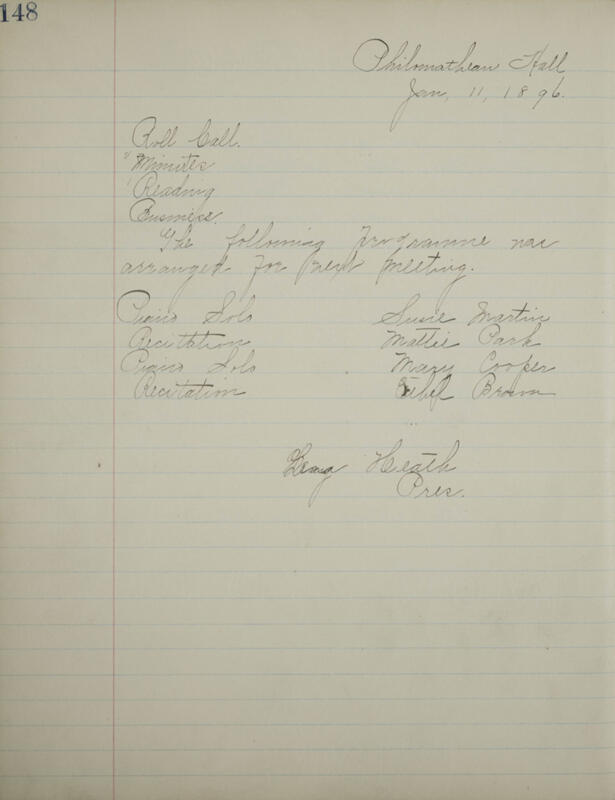 148
Philomathean Hall
Jan. 11, 1896.
Roll Call.
" Minutes
' Reading
Business.
The following programme was
arranged for next meeting.
Piano Solo Susie Martin
Recitation Mattie Park
Piano Solo Mary Cooper
Recitation Ethel Brown
Heath
Pres.